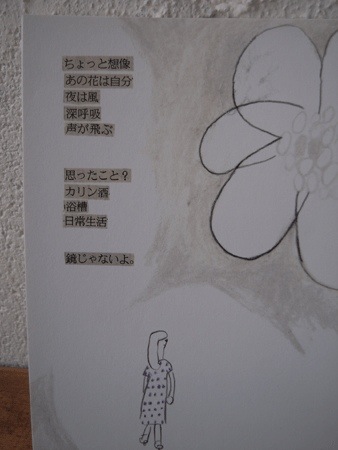 ちょっと想像
あの花は自分
夜は風
深呼吸
声が飛ぶ
思ったこと？
カリン酒
浴槽
日常生活
鏡じゃないよ。